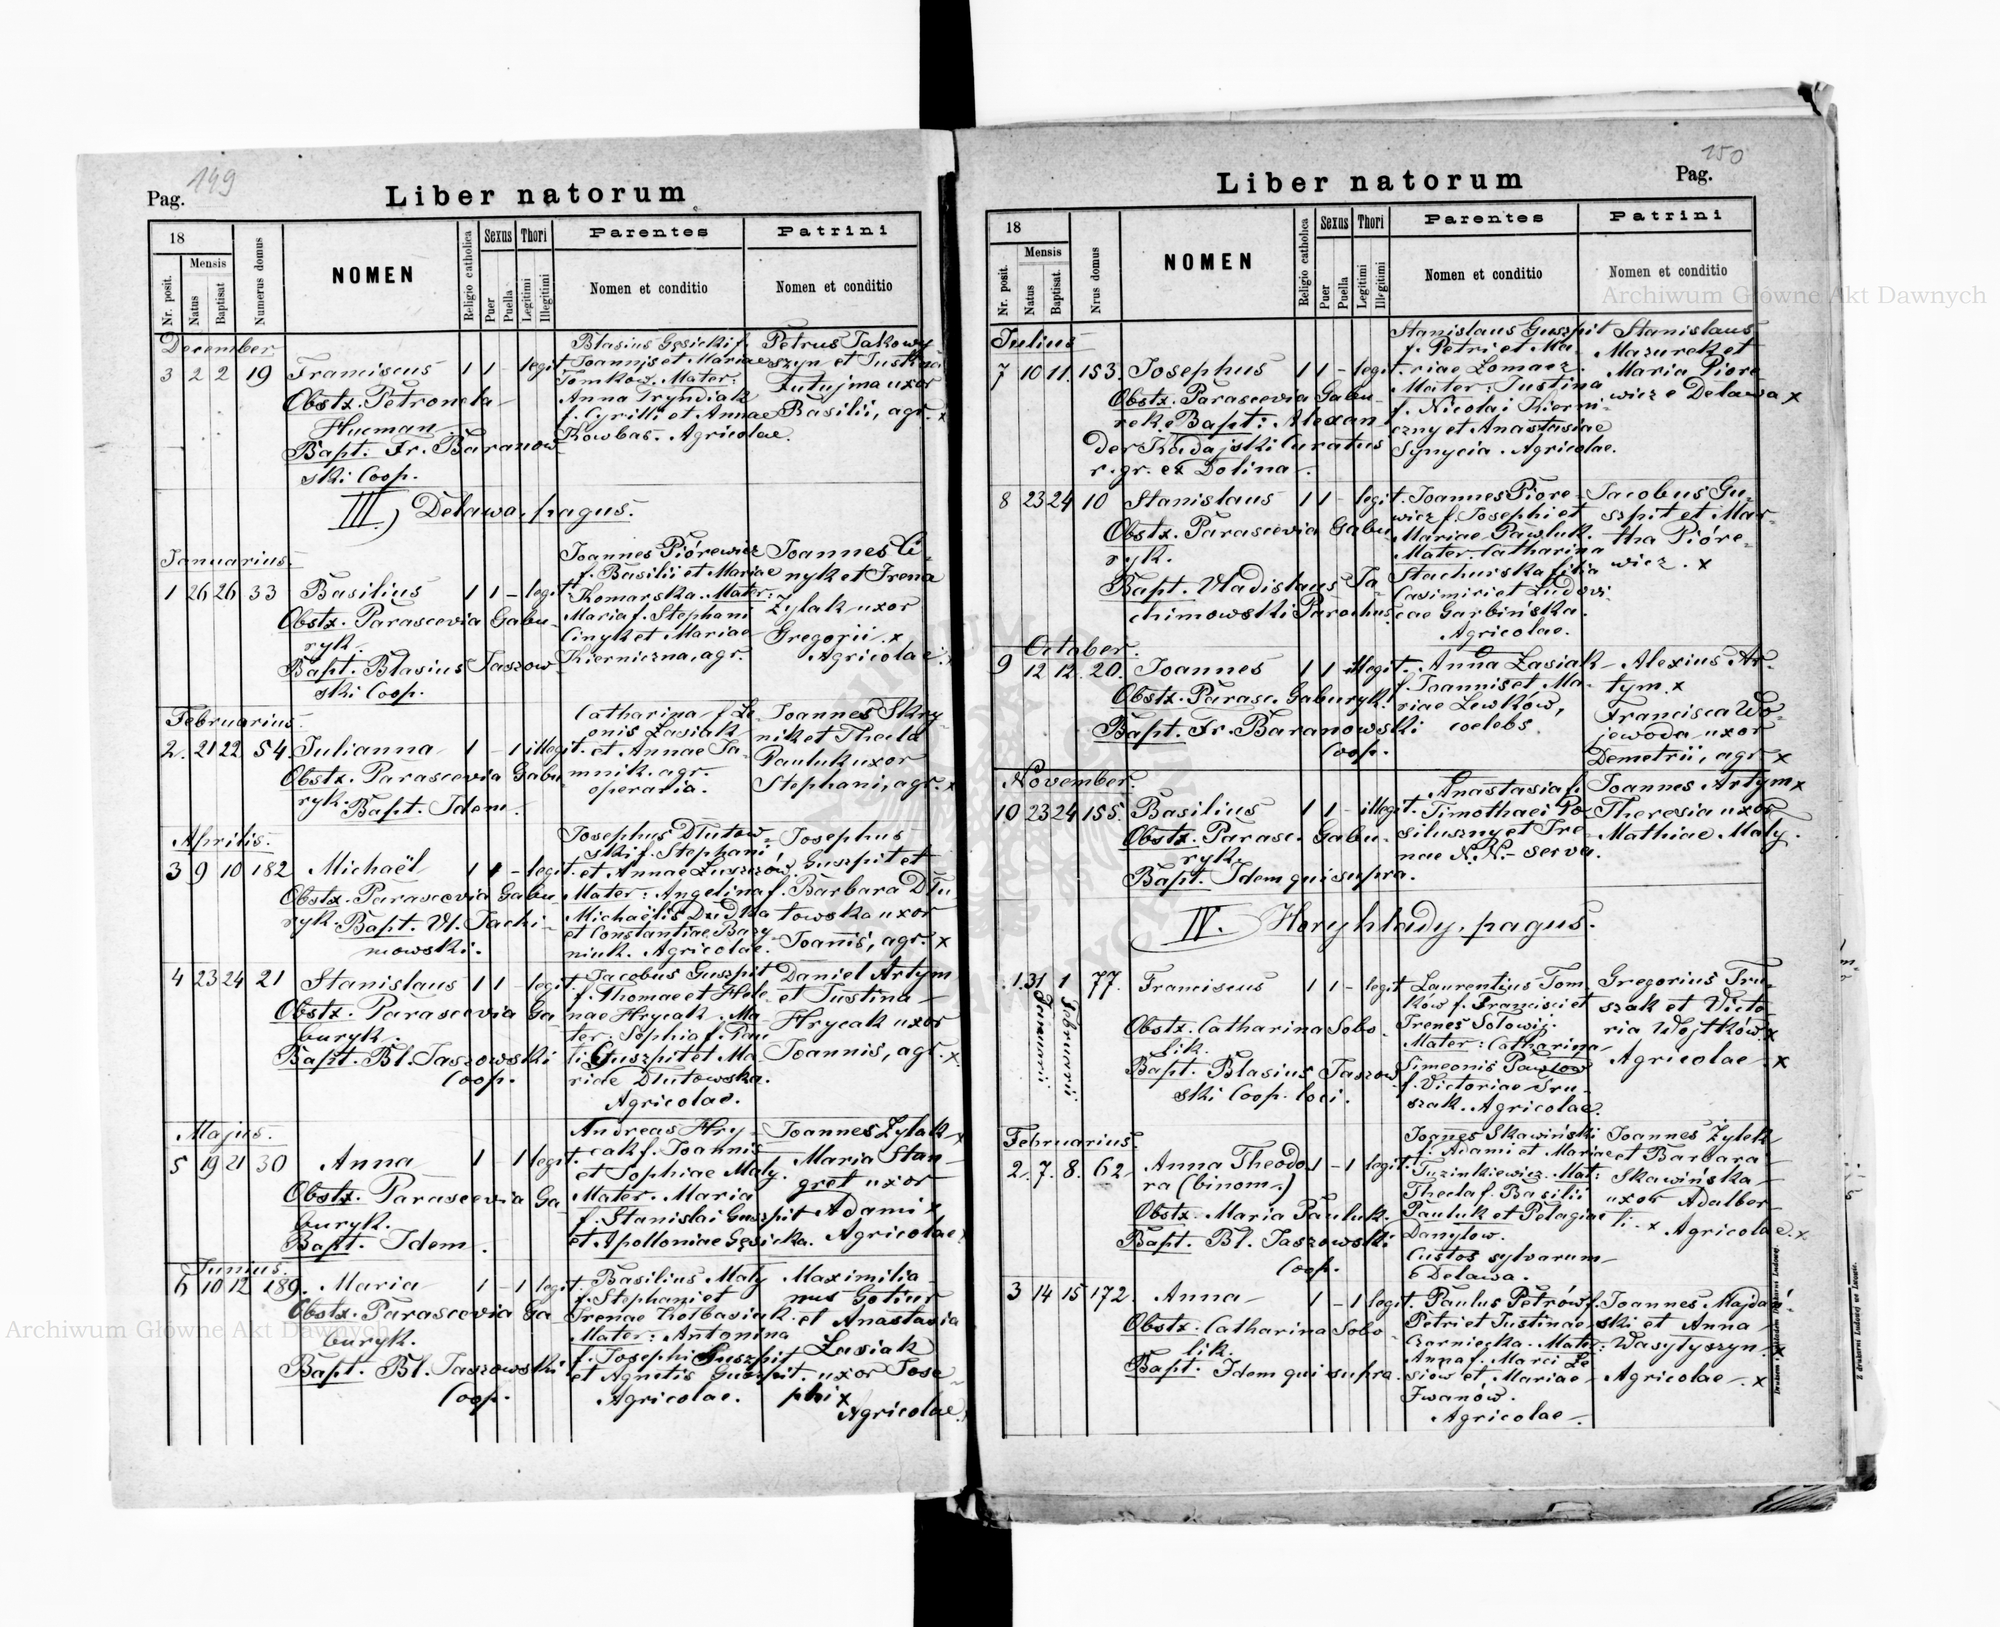 149
Pag.
Liber natorum
18
Mensis
Nr. posit.
Natus
Baptisat.
Numerus domus
NOMEN
Religio catholica
Sexus
Puer
Puella
Thori
Legitimi
Illegitimi
Parentes
Nomen et conditio
Patrini
Nomen et conditio
December
3 2 2 19 Franciscus 1 1 - legit.
Obstx. Petronela
Hucman
Bapt. Fr. Baranow
ski Coop.
Blasius Gęsicki f.
Joannis et Mariae
Tomków. Mater:
Anna Tryndiak
f. Cyrilli et Annae
Kowbas. Agricolae.
Petrus Jakowy
szyn et
uxor
Basilii, agr. x
III.) Delawa, pagus.
Januarius.
1 26 26 33 Basilius 1 1 - legit.
Obstx. Parascevia Gabu
ryk.
Bapt. Blasius Jaszow
ski Coop.
Joannes Piórewicz
f. Basilii et Mariae
Komarska. Mater:
Maria f. Stephani
Cinyk et Mariae
Kierniczna, agr.
Joannes Ci-
nyk et Irena
Żylak uxor
Gregorii. x
Agricolae.
Februarius.
2. 21 22 54. Julianna 1 - 1 illegit.
Obstx. Parascevia Gabu
ryk. Bapt. Idem.
Catharina f. Le-
onis Łasiak
et Annae Ja-
mnik. agr.
operaria.
Joannes Skry-
nik et Thecla
Pauluk uxor
Stephani, agr. x
Aprilis.
3 9 10 182 Michaël 1 1 - legit.
Obstx. Parascevia Gabu
ryk. Bapt. Vl. Jachi-
mowski.
Josephus Dłutow-
ski f. Stephani
et Annae Łuszczów.
Mater: Angelina f.
Michaëlis Dudka
et Constantiae Bazy
niuk. Agricolae.
Josephus
Guszpit et
Barbara Dłu
towska uxor
Joannis, agr. x
4 23 24 21 Stanislaus 1 1 - legit.
Obstx. Parascevia Ga-
buryk.
Bapt. Bl. Jaszowski
Coop.
Jacobus Guszpit
f. Thomae et Hele
nae Hrycak. Ma-
ter: Sophia f. Pau
li Guszpit et Ma-
riae Dłutowska.
Agricolae.
Daniel Artym
et Justina
Hrycak uxor
Joannis, agr. x
Majus.
5 19 21 30 Anna 1 - 1 legit.
Obstx. Parascevia Ga-
buryk.
Bapt. Idem.
Andreas Hry-
cak f. Joannis
et Sophiae Maly.
Mater: Maria
f. Stanislai Guszpit
et Apolloniae Gęsicka.
Joannes Żylak x
Maria Stan-
gret uxor
Adami x
Agricolae
Junius.
6 10 12 189. Maria 1 - 1 legit.
Obstx. Parascevia Ga
buryk.
Bapt. Bl. Jaszowski
Coop.
Basilius Maly
f. Stephani et
Irenae Kolbasiak.
Mater: Antonina
f. Josephi Guszpit
et Agnetis Guszpit.
Agricolae.
Maximilia-
nus
et Anastasia
Łusiak
uxor Jose-
phi x
Agricolae.
150
Liber natorum
Pag.
18
Mensis
Nr. posit.
Natus
Baptisat.
Nrus domus
NOMEN
Religio catholica
Sexus
Puer
Puella
Thori
Legitimi
Illegitimi
Parentes
Nomen et conditio
Patrini
Nomen et conditio
Julius
7 10 11. 153. Josephus 1 1 - legit.
Obstx. Parascevia Gabu-
ryk. Bapt: Alexan
der Kadajski Curatus
r. gr. ex Dolina.
Stanislaus Guszpit
f. Petri et Ma-
riae Łomacz.
Mater: Justina
f. Nicolai Kierni-
czny et Anastasiae
Synycia. Agricolae.
Stanislaus
Mazurek et
Maria Piore
wicz e Delawa x
8 23 24 10 Stanislaus 1 1 - legit.
Obstx. Parascevia Gabu
ryk.
Bapt. Vladislaus Ja-
chimowski Parochus.
Joannes Piore-
wicz f. Josephi et
Mariae Pawluk.
Mater. Catharina
Stachurska filia
Casimiri et Ludovi-
cae Garbińska.
Agricolae.
Jacobus Gu-
szpit et Mar-
tha Pióre-
wicz. x
October.
9 12 12. 20. Joannes 1 1 - illegit.
Obstx. Parasc. Gaburyk.
Bapt. Fr. Baranowski
Coop.
Anna Łasiak
f. Joannis et Ma-
riae Lewków,
coelebs.
Alexius Ar-
tym. x
Francisca Wo-
jewoda uxor
Demetrii, agr. x
November.
10 23 24 155. Basilius 1 1 - illegit.
Obstx. Parasc. Gabu-
ryk.
Bapt. Idem qui supra.
Anastasia f.
Timothaei Po
siluszny et Ire-
nae N. N. - serva.
Joannes Artym x
Theresia uxor
Mathiae Maly.
IV. Horyhlady, pagus.
1. 31 Januarii 1 Februarii 77. Franciscus 1 1 - legit.
Obstx. Catharina Sobo-
lik.
Bapt. Blasius Jaszow
ski Coop. loci.
Laurentius Tom-
ków f. Francisci et
Irenes Sołowij.
Mater: Catharina
Simeonis Pawłow
f. Victoriae Gru-
szak. Agricolae.
Gregorius Gru-
szak et Victo
ria Wojtków x
Agricolae. x
Februarius.
2. 7. 8. 62 Anna Theodo 1 - 1 legit.
ra (binom.)
Obstx. Maria Pauluk.
Bapt. Bl. Jaszowski
Coop.
Joannes Skawiński
f. Adami et Mariae
Tuzinkiewicz. Mat:
Thecla f. Basilii
Pauluk et Pelagiae
Danylow.
Custos sylvarum
e Delawa.
Joannes Żylek
et Barbara
Skawińska
uxor Adalber-
ti. x Agricolae. x
3 14 15 172. Anna 1 - 1 legit.
Obstx. Catharina Sobo-
lik.
Bapt. Idem qui supra.
Paulus Petrów f.
Petri et Justinae
Czarniecka. Mater:
Anna f. Marci Le
siów et Mariae
Iwanów.
Agricolae.
Joannes Majdań-
ski et Anna
Wasylyszyn. x
Agricolae. x
Z drukarni Ludowej we Lwowie.
Archiwum Główne Akt Dawnych
Archiwum Główne Akt Dawnych